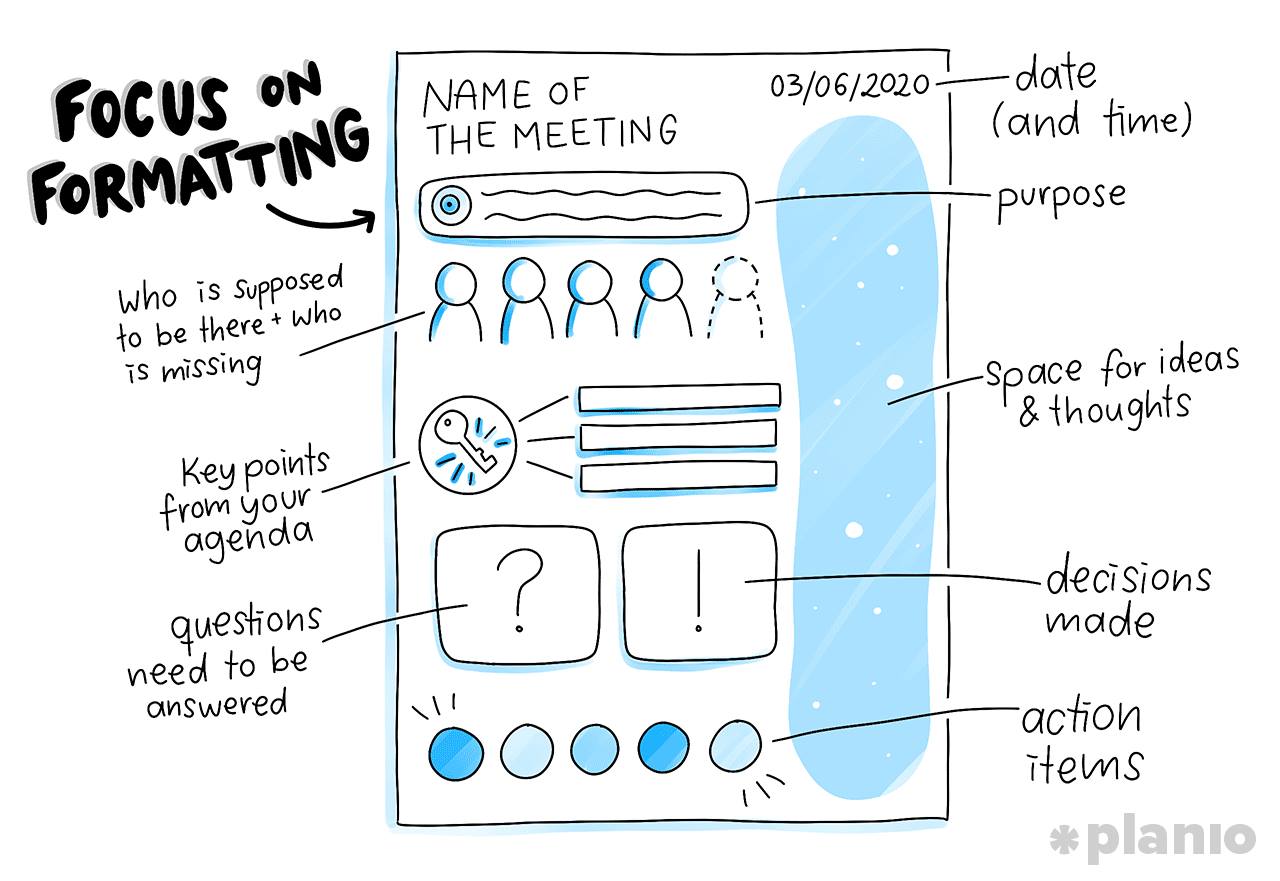 FOCUS ON
FORMATTING
NAME OF
THE MEETING
03/06/2020
date
(and time)
purpose
Who is supposed
to be there + who
is missing
space for ideas
& thoughts
Key points
from your
agenda
?
!
decisions
made
questions
need to be
answered
action
items
*planio